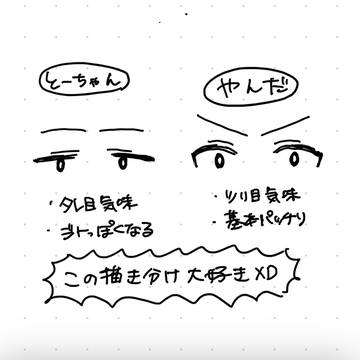 とーちゃん
やんだ
・タレ目気味
・ヨトっぽくなる
・ツリ目気味
・基本パッチリ
この描き分け大好きXD